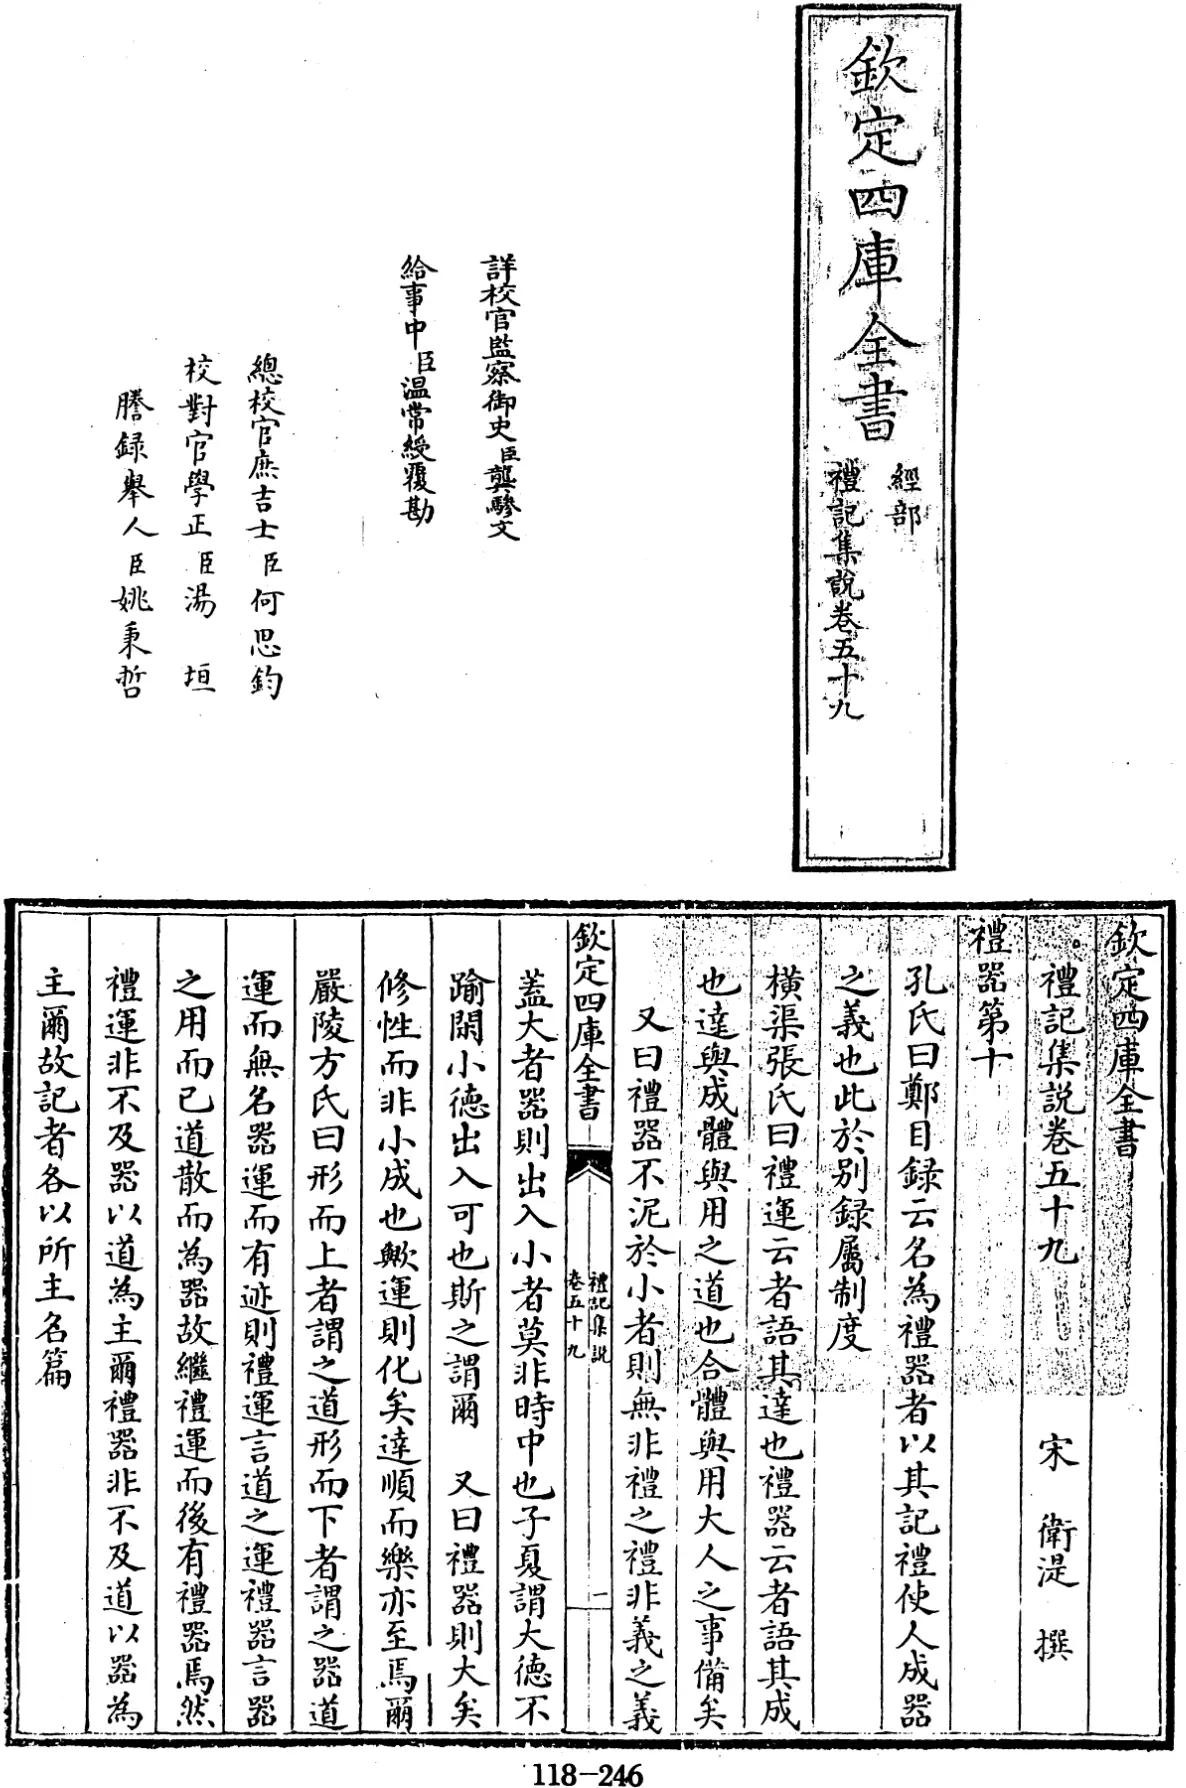 欽定四庫全書
經部
禮記集說卷五十九
詳校官監察御史臣龔驂文
給事中臣温常綬覆勘
總校官庶吉士臣何思鈞
校對官學正臣湯垣
謄錄舉人臣姚秉哲
欽定四庫全書
禮記集說卷五十九
宋 衛湜 撰
禮器第十
孔氏曰鄭目録云名為禮器者以其記禮使人成器
之義也此於別録屬制度
橫渠張氏曰禮運云者語其達也禮器云者語其成
也達與成體與用之道也合體與用大人之事備矣
又曰禮器不泥於小者則無非禮之禮非義之義
欽定四庫全書
禮記集說
卷五十九
一
蓋大者器則出入小者莫非時中也子夏謂大德不
踰閑小德出入可也斯之謂爾 又曰禮器則大矣
修性而非小成也歟運則化矣達順而樂亦至焉爾
嚴陵方氏曰形而上者謂之道形而下者謂之器道
運而無名器運而有迹則禮運言道之運禮器言器
之用而已道散而為器故繼禮運而後有禮器焉然
禮運非不及器以道為主爾禮器非不及道以器為
主爾故記者各以所主名篇
118-246